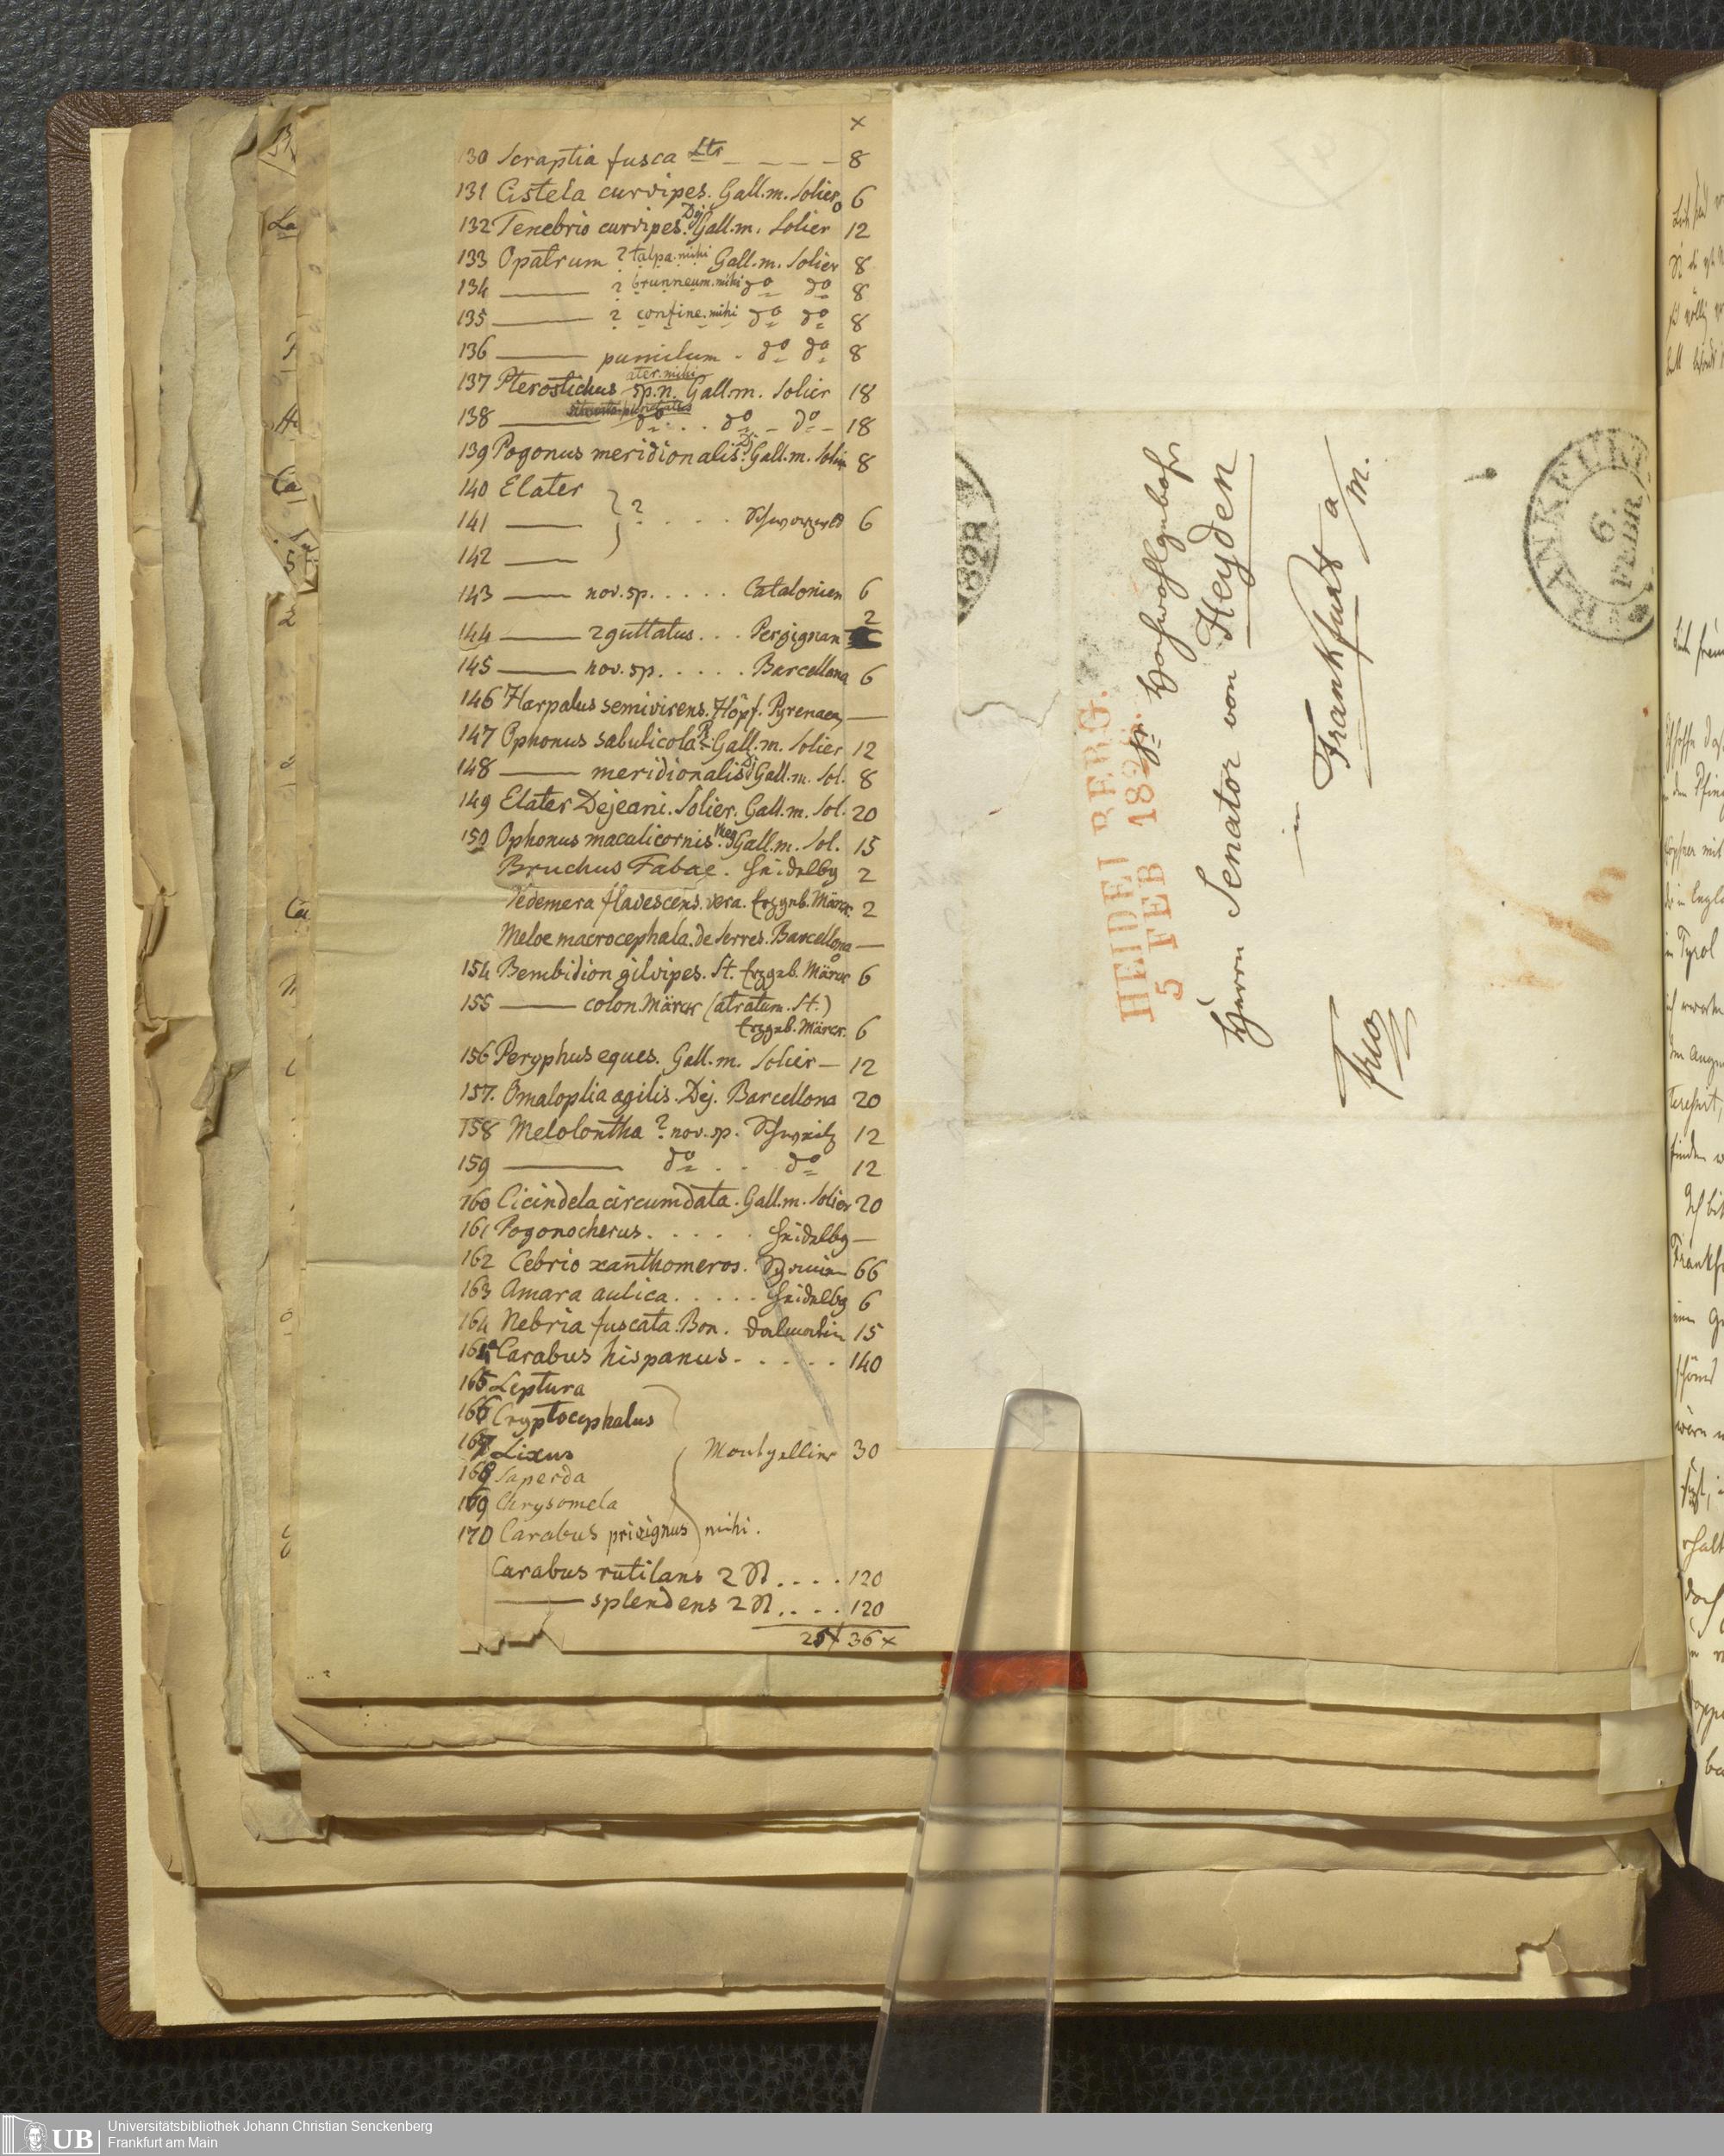 x
130 Scraptia fusca Ltr — — — — 8
131 Cistela curvipes. Gall. m. Solier 6
132 Tenebrio curvipes. Dej. Gall. m. Solier 12
133 Opatrum ? talpa. mihi Gall. m. Solier 8
134 ——— ? brunneum. mihi do do 8
135 ——— ? confine. mihi do do 8
136 ——— pumilum - do do 8
137 Pterostichus sp. n. ater. mihi Gall. m. Solier 18
138 ——— do . . . do - do - 18
139 Pogonus meridionalis Dj. Gall. m. Solier 8
140 Elater
141 ——— ? . . . . Schwarzwld 6
142 ———
143 ——— nov. sp. . . . . Catalonien 6
144 ——— 2guttatus . . . Perpignan 2
145 ——— nov. sp. . . . . Barcellona 6
146 Harpalus semivirens. Höpf. Pyrenaen —
147 Ophonus sabulicola ? Gall. m. Solier 12
148 ——— meridionalis Dj Gall. m. Sol. 8
149 Elater Dejeani. Solier. Gall. m. Sol. 20
150 Ophonus maculicornis. Meg Gall. m. Sol. 15
Bruchus Fabae. Heidelbg 2
Oedemera flavescens. vera. Erzgeb. Märkr. 2
Meloe macrocephala. de Serres. Barcellona —
154 Bembidion gilvipes. St. Erzgeb. Märkr 6
155 ——— colon. Märkr (atratum. St.)
Erzgeb. Märkr. 6
156 Peryphus eques. Gall. m. Solier — 12
157. Omaloplia agilis. Dej. Barcellona 20
158 Melolontha ? nov. sp. Schweitz 12
159 ——— do . . do 12
160 Cicindela circumdata. Gall. m. Solier 20
161 Pogonocherus . . . . . Heidelbg —
162 Cebrio xanthomeros. Spanien 66
163 Amara aulica . . . . . Heidelbg 6
164 Nebria fuscata. Bon. Dalmatien 15
Carabus hispanus . . . . . 140
165 Leptura
166 Cryptocephalus
167 Lixus Montpellier 30
168 Saperda
169 Chrysomela
170 Carabus privignus mihi.
Carabus rutilans 2 St . . . . 120
——— splendens 2 St . . . . 120
36 x
HEIDELBERG.
5 FEB 182
Sr Hochwohlgebohr
Herrn Senator von Heyden
in
Frankfurt a/m.
frco
1828
FRANKFURT
6.
FEBR.
UB
Universitätsbibliothek Johann Christian Senckenberg
Frankfurt am Main